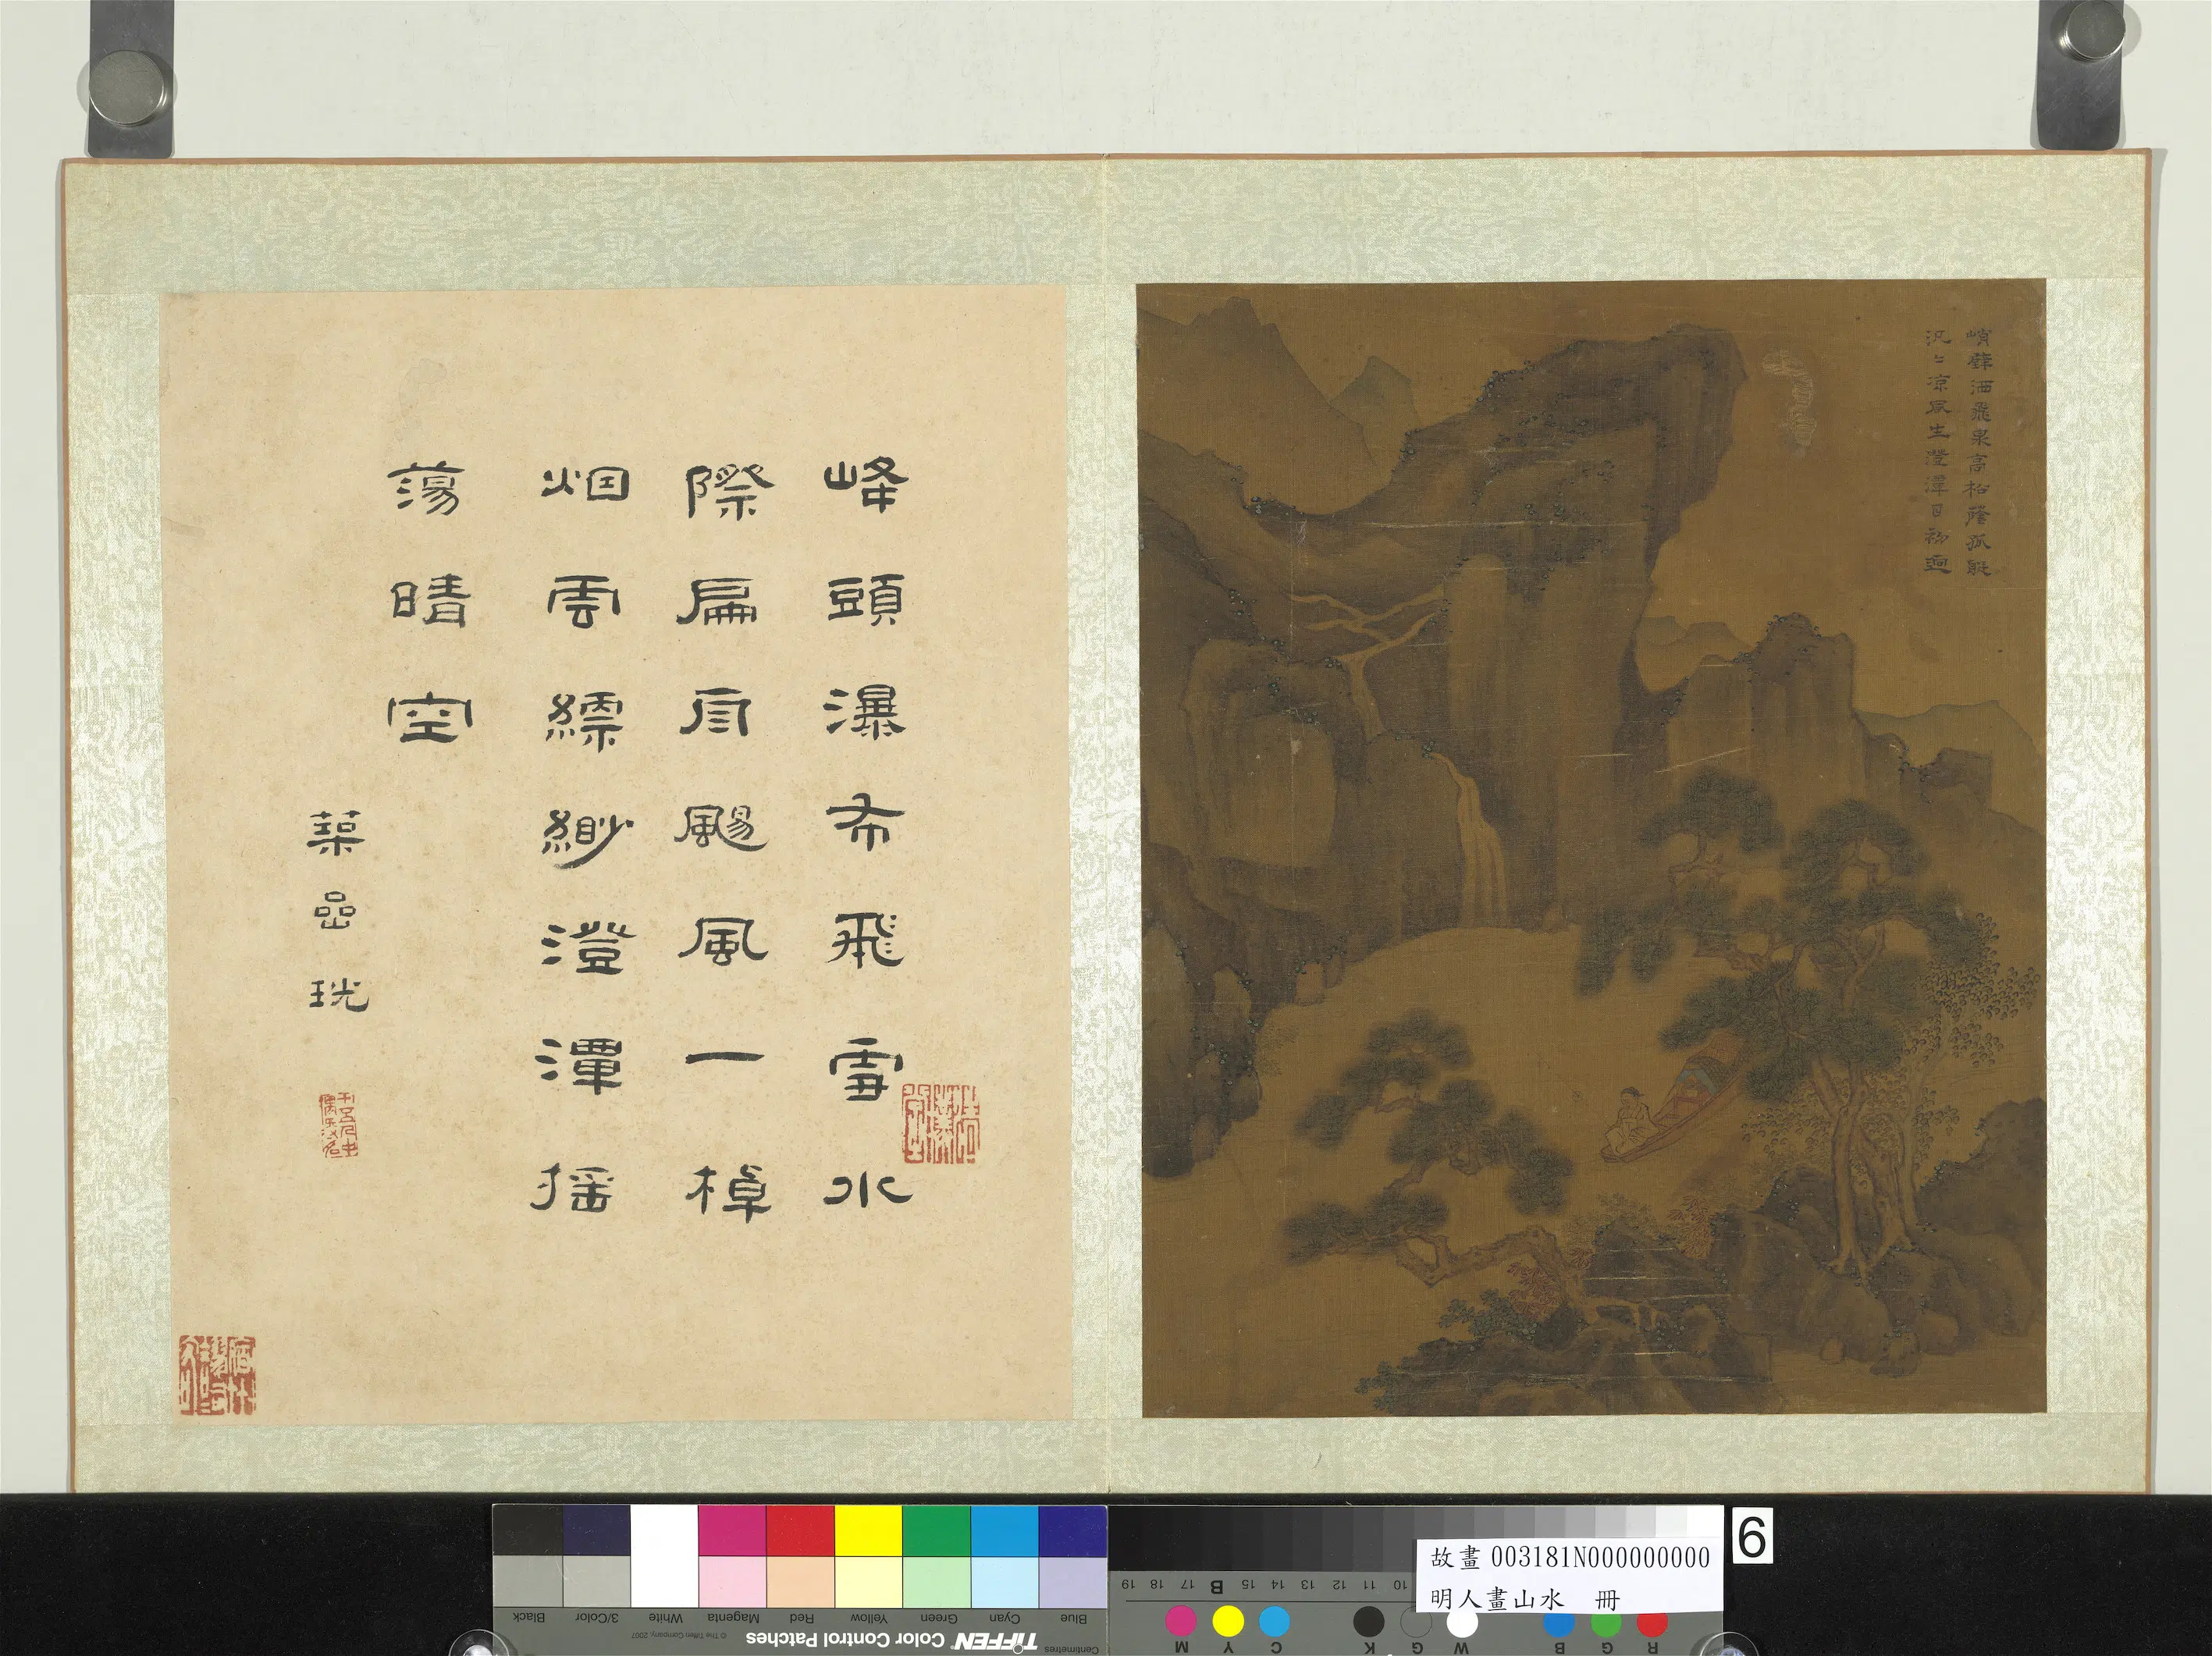 峭壁洒飛泉高松蔭孤艇
汎〻凉風生澄潭日初迥
峰頭瀑布飛雪水
際扁舟颺風一棹
烟雲縹緲澄潭搖
蕩晴空
嵒珖
6
故畫 003181N000000000
明人畫山水 冊
Blue Cyan Green Yellow Red Magenta White 3/Color Black
Centimetres TIFFEN Color Control Patches © The Tiffen Company, 2007
10 11 12 13 14 15 B 17 18 19
R G B W G K C Y M